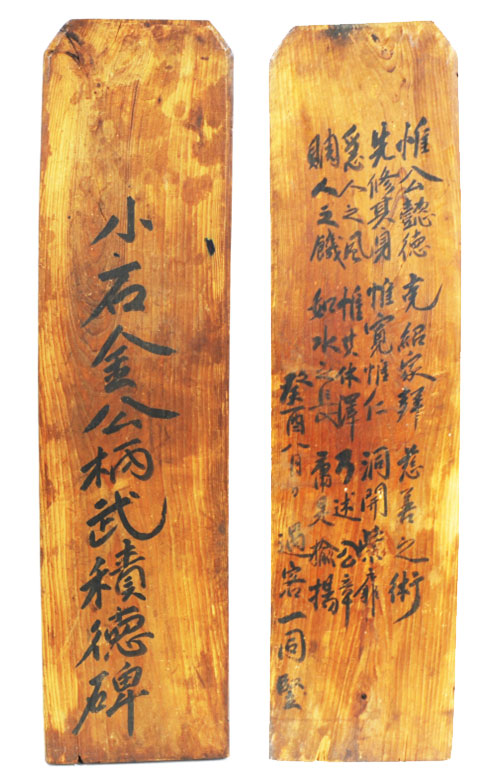 小石金公柄武積德碑
惟公懿德 克紹家 慈善之術
先修其身 惟寬惟仁 洞開
人之風 惟其休澤 乃述公章
賙人之饑 如水之長 庸是揄揚
癸酉八月 日 過客一同 竪